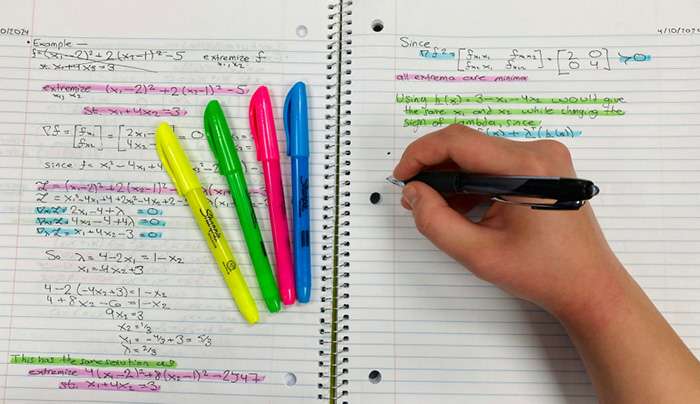 0/2024
• Example —
f = (x₁-2)²+2(x₂-1)²-5 extremize f
x₁,x₂
st. x₁+4x₂=3
extremize (x₁-2)²+2(x₂-1)²-5
x₁ x₂
st. x₁+4x₂=3
∇f = [fx₁ fx₂] = [2x₁- 4x₂- = 0
since f = x₁²-4x₁+4
ℒ = (x₁-2)²+2(x₂-1)²
ℒ = x₁²-4x₁+4+2x₂²-4x₂+2
2x₁-4+λ =0
4x₂-4+4λ =0
x₁+4x₂-3 =0
So λ=4-2x₁=1-x₂
x₁=-4x₂+3
4-2(-4x₂+3)=1-x₂
4+8x₂-6=1-x₂
9x₂=3
x₂=1/3
x₁=-4/3+3=5/3
λ=2/3
This has the same solution as
extremize 4(x₁-2)²+8(x₂-1)²-2547
st. x₁+4x₂=3
4/10/202
Since
∇f² = [fx₁x₁ fx₁x₂ fx₂x₁ fx₂x₂] = [2 0 0 4] >0
all extrema are minima
Using h(x)=3-x₁-4x₂ would give
the same x₁ and x₂ while changing the
sign of lambda, since
f(x)+λ(h(x))
Sharpie